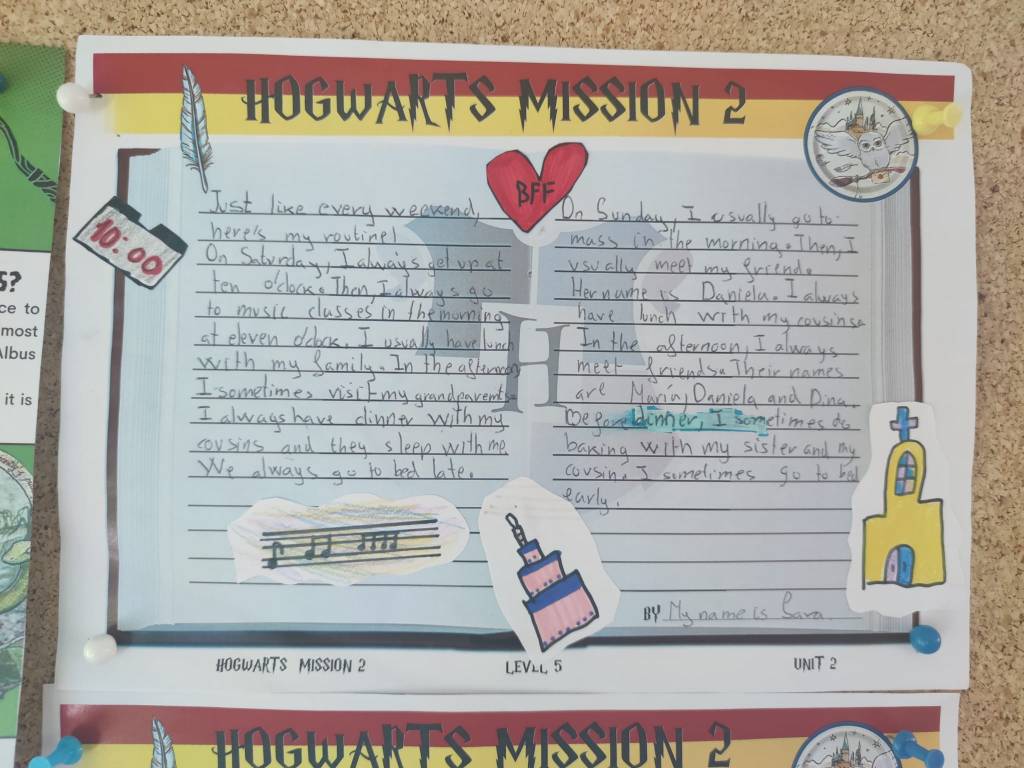 HOGWARTS MISSION 2
BFF
10:00
Just like every weekend,
here's my routine!
On Saturday, I always get up at
ten o'clock. Then, I always go
to music classes in the morning
at eleven o'clock. I usually have lunch
with my family. In the afternoon
I sometimes visit my grandparents.
I always have dinner with my
cousins and they sleep with me.
We always go to bed late.
On Sunday, I usually go to
mass in the morning. Then, I
usually meet my friend.
Her name is Daniela. I always
have lunch with my cousins.
In the afternoon, I always
meet friends. Their names
are María, Daniela and Dina.
Before dinner, I sometimes do
baking with my sister and my
cousin. I sometimes go to bed
early.
BY My name is Sara.
HOGWARTS MISSION 2
LEVEL 5
UNIT 2
HOGWARTS MISSION 2
S?
ce to
most
Albus
it is